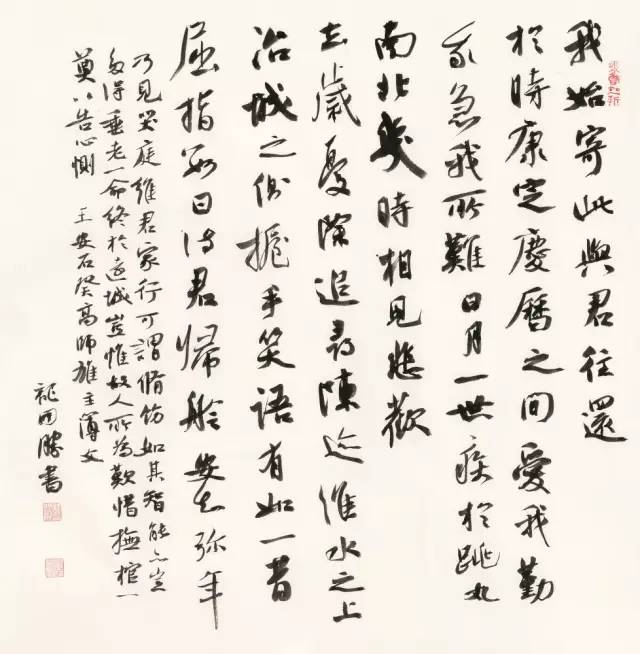 我始寄此與君往還
於時康定慶曆之間愛我勤
我急我所難日月一世疾於跳丸
南北幾時相見悲歡
去歲憂除追尋陳迹淮水之上
冶城之側握手笑語有如一昔
屈指數日待君歸舲安知弥年
乃見哭庭維君家行可謂脩飭如其智能亦豈
多得垂老一命終於遠域豈惟故人所為歎惜撫棺一
奠以告心惻 王安石祭高師雄主簿文
勝書